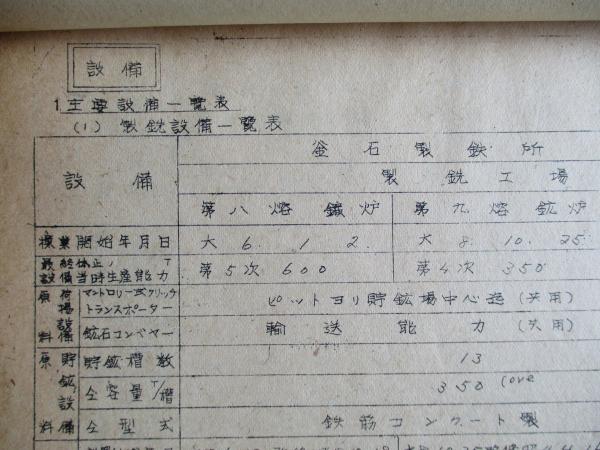 設備
1.主要設備一覧表
(1) 製銑設備一覧表
設備
釜石製鉄所
製銑工場
第八熔鑛炉 第九熔鉱炉
操業開始年月日 大 6. 1. 2. 大 8. 10. 25.
最終休止ノ
設備当時生産能力 T 第5次 600 第4次 350
原料 荷場設備 マントロリー式クリップトランスポーター ピットヨリ貯鉱場中心迄(共用)
鉱石コンベヤー 輸送能力(共用)
原料 貯鉱設備 貯鉱槽数 13
仝容量 T/槽 350 (ore
仝型式 鉄筋コンクート製